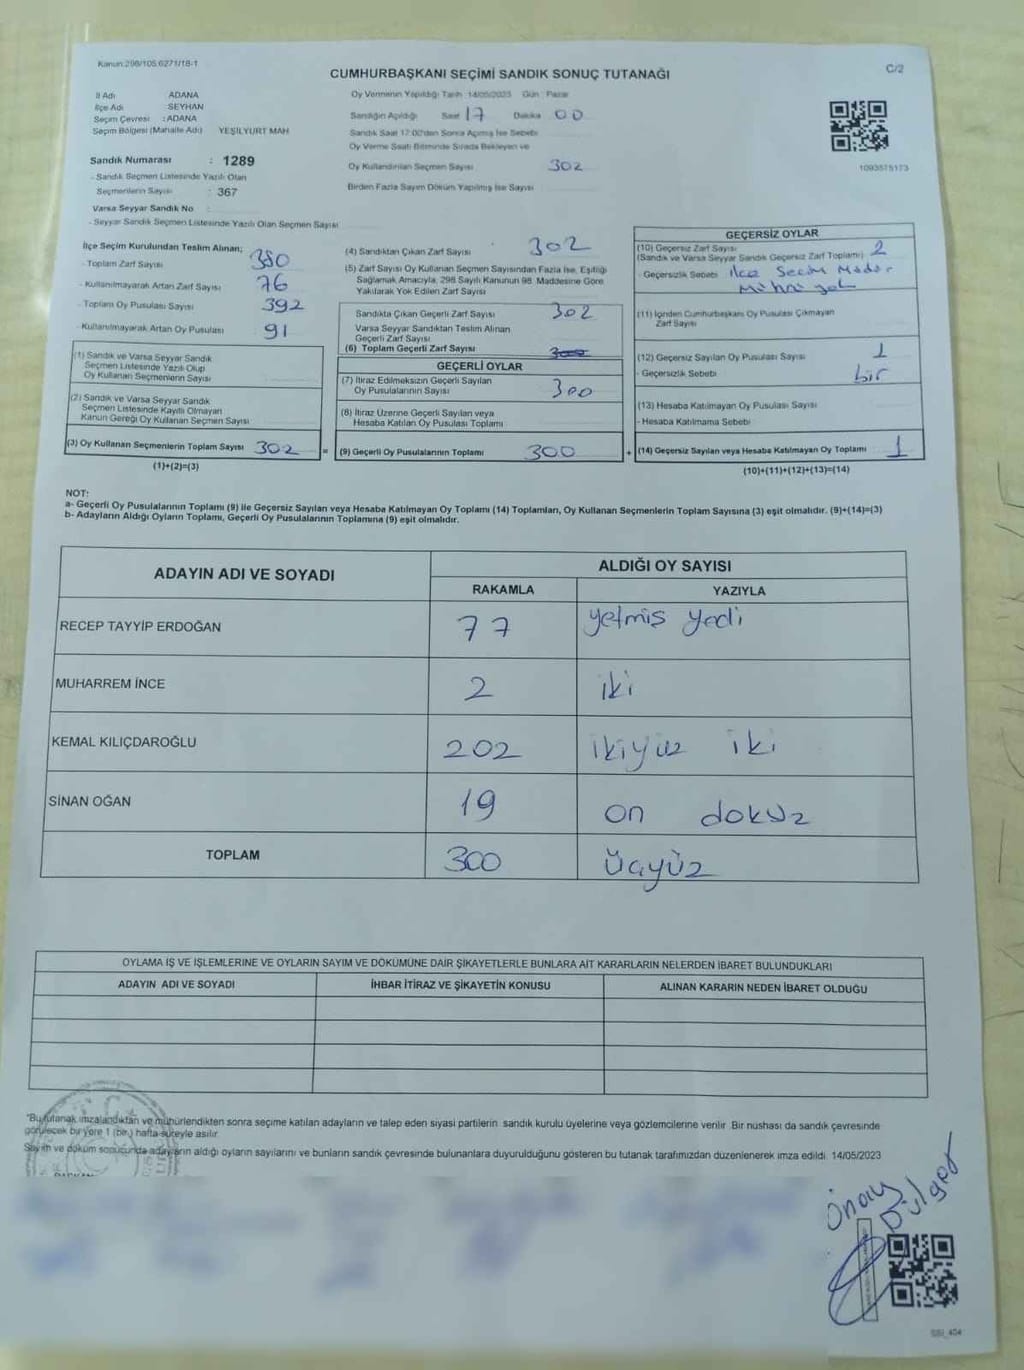 Kanun:298/105,6271/18-1
C/2
CUMHURBAŞKANI SEÇİMİ SANDIK SONUÇ TUTANAĞI
İl Adı ADANA
İlçe Adı SEYHAN
Seçim Çevresi : ADANA
Seçim Bölgesi (Mahalle Adı) YEŞİLYURT MAH
Sandık Numarası : 1289
- Sandık Seçmen Listesinde Yazılı Olan
Seçmenlerin Sayısı : 367
Varsa Seyyar Sandık No
- Seyyar Sandık Seçmen Listesinde Yazılı Olan Seçmen Sayısı
Oy Vermenin Yapıldığı Tarih 14/05/2023 Gün : Pazar
Sandığın Açıldığı Saat 17 Dakika 00
Sandık Saat 17:00'den Sonra Açılmış İse Sebebi
Oy Verme Saati Bitiminde Sırada Bekleyen ve
Oy Kullandırılan Seçmen Sayısı 302
Birden Fazla Sayım Döküm Yapılmış İse Sayısı
1093575173
İlçe Seçim Kurulundan Teslim Alınan;
- Toplam Zarf Sayısı 380
- Kullanılmayarak Artan Zarf Sayısı 76
- Toplam Oy Pusulası Sayısı 392
- Kullanılmayarak Artan Oy Pusulası 91
(1) Sandık ve Varsa Seyyar Sandık
Seçmen Listesinde Yazılı Olup
Oy Kullanan Seçmenlerin Sayısı
(2) Sandık ve Varsa Seyyar Sandık
Seçmen Listesinde Kayıtlı Olmayan
Kanun Gereği Oy Kullanan Seçmen Sayısı
(3) Oy Kullanan Seçmenlerin Toplam Sayısı 302
(1)+(2)=(3)
(4) Sandıktan Çıkan Zarf Sayısı 302
(5) Zarf Sayısı Oy Kullanan Seçmen Sayısından Fazla İse, Eşitliği
Sağlamak Amacıyla, 298 Sayılı Kanunun 98. Maddesine Göre
Yakılarak Yok Edilen Zarf Sayısı
Sandıkta Çıkan Geçerli Zarf Sayısı 302
Varsa Seyyar Sandıktan Teslim Alınan
Geçerli Zarf Sayısı
(6) Toplam Geçerli Zarf Sayısı
GEÇERLİ OYLAR
(7) İtiraz Edilmeksizin Geçerli Sayılan
Oy Pusulalarının Sayısı 300
(8) İtiraz Üzerine Geçerli Sayılan veya
Hesaba Katılan Oy Pusulası Toplamı
= (9) Geçerli Oy Pusulalarının Toplamı 300
GEÇERSİZ OYLAR
(10) Geçersiz Zarf Sayısı 2
(Sandık ve Varsa Seyyar Sandık Geçersiz Zarf Toplamı)
- Geçersizlik Sebebi ilce Secim
(11) İçinden Cumhurbaşkanı Oy Pusulası Çıkmayan
Zarf Sayısı
(12) Geçersiz Sayılan Oy Pusulası Sayısı 1
- Geçersizlik Sebebi bir
(13) Hesaba Katılmayan Oy Pusulası Sayısı
- Hesaba Katılmama Sebebi
+ (14) Geçersiz Sayılan veya Hesaba Katılmayan Oy Toplamı 1
(10)+(11)+(12)+(13)=(14)
NOT:
a- Geçerli Oy Pusulalarının Toplamı (9) ile Geçersiz Sayılan veya Hesaba Katılmayan Oy Toplamı (14) Toplamları, Oy Kullanan Seçmenlerin Toplam Sayısına (3) eşit olmalıdır. (9)+(14)=(3)
b- Adayların Aldığı Oyların Toplamı, Geçerli Oy Pusulalarının Toplamına (9) eşit olmalıdır.
ADAYIN ADI VE SOYADI ALDIĞI OY SAYISI
RAKAMLA YAZIYLA
RECEP TAYYİP ERDOĞAN 77 yetmis yedi
MUHARREM İNCE 2 iki
KEMAL KILIÇDAROĞLU 202 ikiyüz iki
SİNAN OĞAN 19 on dokuz
TOPLAM 300 Üçyüz
OYLAMA İŞ VE İŞLEMLERİNE VE OYLARIN SAYIM VE DÖKÜMÜNE DAİR ŞİKAYETLERLE BUNLARA AİT KARARLARIN NELERDEN İBARET BULUNDUKLARI
ADAYIN ADI VE SOYADI İHBAR İTİRAZ VE ŞİKAYETİN KONUSU ALINAN KARARIN NEDEN İBARET OLDUĞU
*Bu tutanak imzalandıktan ve mühürlendikten sonra seçime katılan adayların ve talep eden siyasi partilerin sandık kurulu üyelerine veya gözlemcilerine verilir. Bir nüshası da sandık çevresinde
görülecek bir yere 1 (bir) hafta süreyle asılır.
Sayım ve döküm sonucunda adayların aldığı oyların sayılarını ve bunların sandık çevresinde bulunanlara duyurulduğunu gösteren bu tutanak tarafımızdan düzenlenerek imza edildi. 14/05/2023
Önay
Dülger